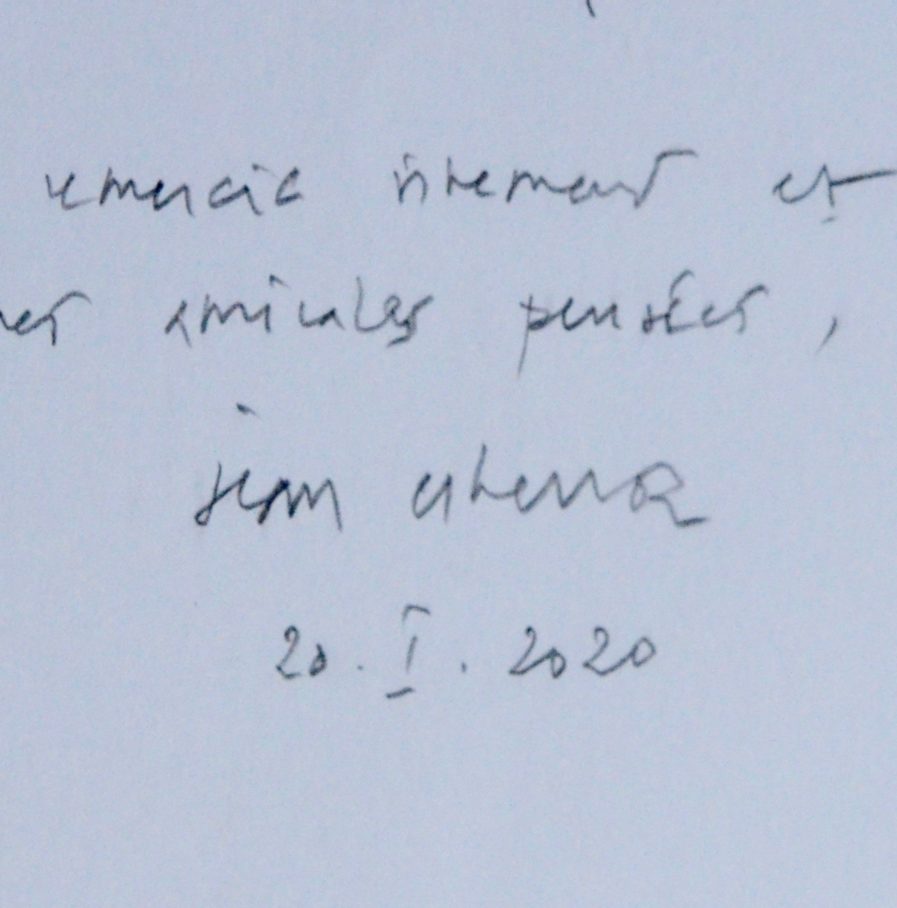 remercie vivement et
mes amicales pensées,
jean
20.I.2020